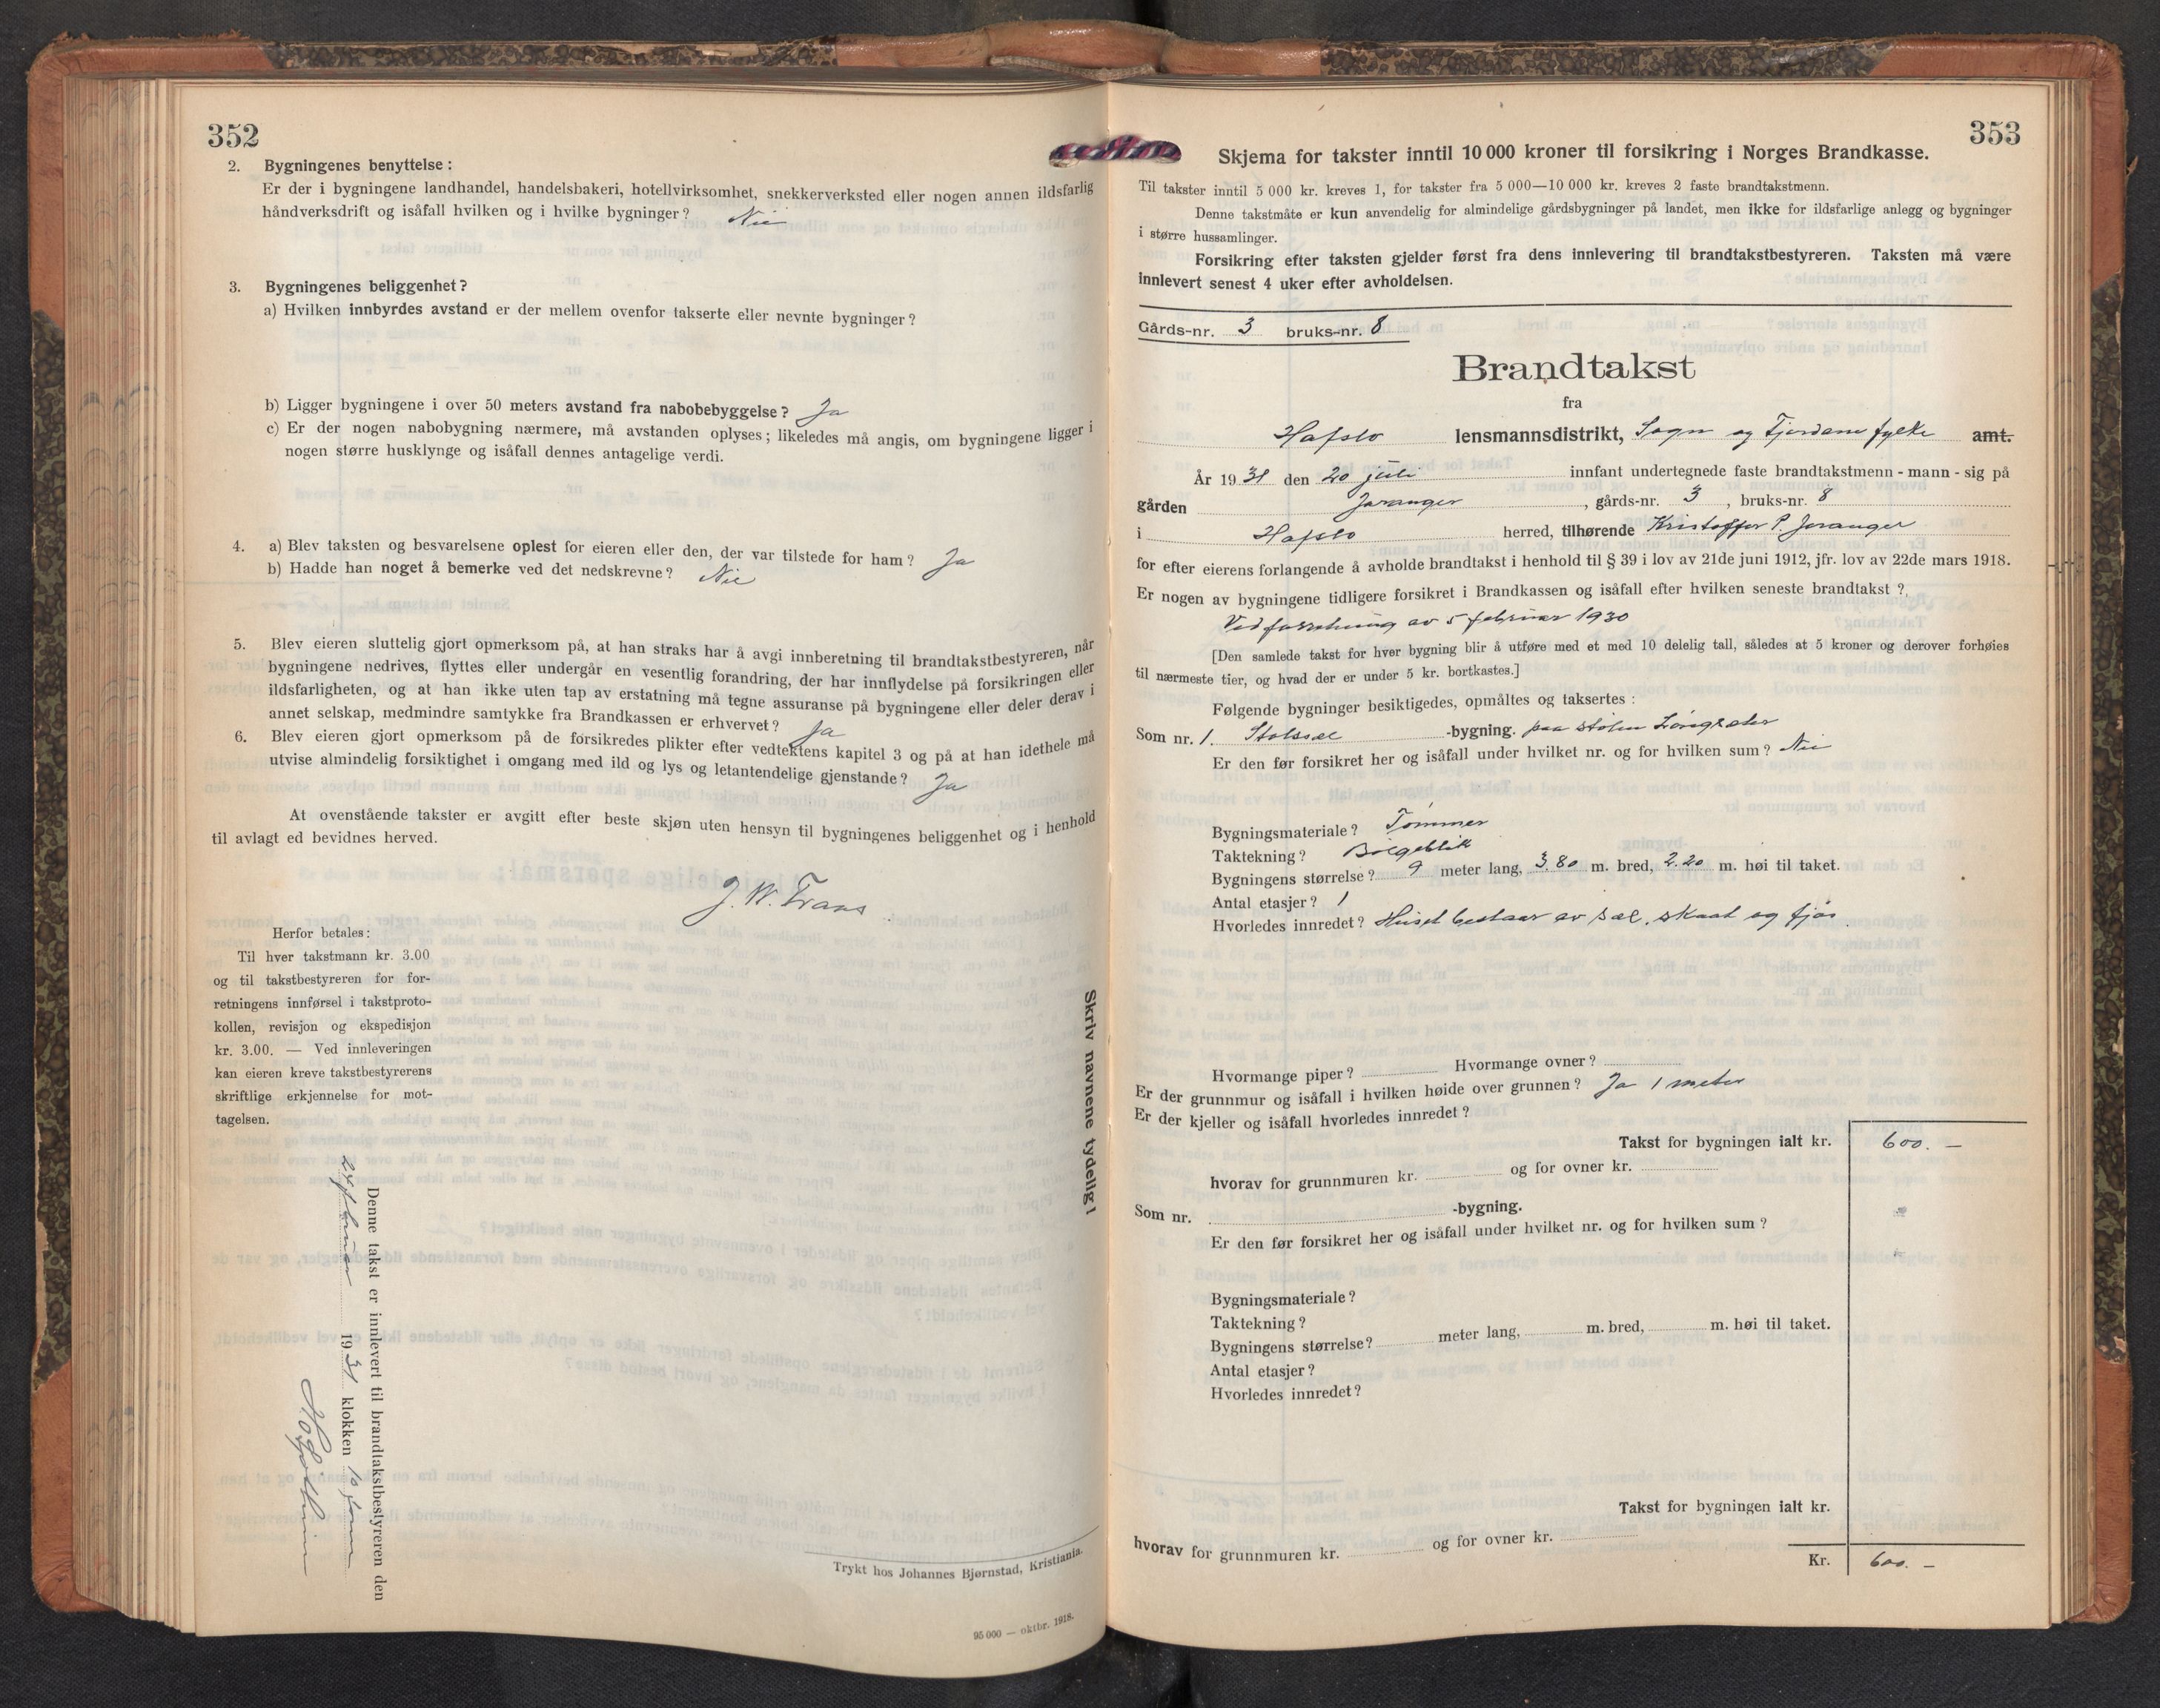 352
2. Bygningenes benyttelse:
Er der i bygningene landhandel, handelsbakeri, hotellvirksomhet, snekkerverksted eller nogen annen ildsfarlig
håndverksdrift og isåfall hvilken og i hvilke bygninger? Nei
3. Bygningenes beliggenhet?
a) Hvilken innbyrdes avstand er der mellem ovenfor takserte eller nevnte bygninger?
b) Ligger bygningene i over 50 meters avstand fra nabobebyggelse? Ja
c) Er der nogen nabobygning nærmere, må avstanden oplyses; likeledes må angis, om bygningene ligger i
nogen større husklynge og isåfall dennes antagelige verdi.
4. a) Blev taksten og besvarelsene oplest for eieren eller den, der var tilstede for ham? Ja
b) Hadde han noget å bemerke ved det nedskrevne? Nei
5. Blev eieren sluttelig gjort opmerksom på, at han straks har å avgi innberetning til brandtakstbestyreren, når
bygningene nedrives, flyttes eller undergår en vesentlig forandring, der har innflydelse på forsikringen eller
ildsfarligheten, og at han ikke uten tap av erstatning må tegne assuranse på bygningene eller deler derav i
annet selskap, medmindre samtykke fra Brandkassen er erhvervet? Ja
6. Blev eieren gjort opmerksom på de forsikredes plikter efter vedtektens kapitel 3 og på at han idethele må
utvise almindelig forsiktighet i omgang med ild og lys og letantendelige gjenstande? Ja
At ovenstående takster er avgitt efter beste skjøn uten hensyn til bygningenes beliggenhet og i henhold
til avlagt ed bevidnes herved.
J. W. Frans
Herfor betales:
Til hver takstmann kr. 3.00
og til takstbestyreren for for-
retningens innførsel i takstproto-
kollen, revisjon og ekspedisjon
kr. 3.00. — Ved innleveringen
kan eieren kreve takstbestyrerens
skriftlige erkjennelse for mot-
tagelsen.
Skriv navnene tydelig!
Denne takst er innlevert til brandtakstbestyreren den
1931 klokken 10 form
Trykt hos Johannes Bjørnstad, Kristiania.
95 000 — oktbr. 1918.
353
Skjema for takster inntil 10 000 kroner til forsikring i Norges Brandkasse.
Til takster inntil 5 000 kr. kreves 1, for takster fra 5 000—10 000 kr. kreves 2 faste brandtakstmenn.
Denne takstmåte er kun anvendelig for almindelige gårdsbygninger på landet, men ikke for ildsfarlige anlegg og bygninger
i større hussamlinger.
Forsikring efter taksten gjelder først fra dens innlevering til brandtakstbestyreren. Taksten må være
innlevert senest 4 uker efter avholdelsen.
Gårds-nr. 3 bruks-nr. 8
Brandtakst
fra
Hafslo lensmannsdistrikt, Sogn og Fjordane fylke amt.
År 1931 den 20 juli innfant undertegnede faste brandtakstmenn - mann - sig på
gården Joranger, gårds-nr. 3, bruks-nr. 8
i Hafslo herred, tilhørende Kristoffer P. Joranger
for efter eierens forlangende å avholde brandtakst i henhold til § 39 i lov av 21de juni 1912, jfr. lov av 22de mars 1918.
Er nogen av bygningene tidligere forsikret i Brandkassen og isåfall efter hvilken seneste brandtakst?
Ved forretning av 5 februar 1930
[Den samlede takst for hver bygning blir å utføre med et med 10 delelig tall, således at 5 kroner og derover forhøies
til nærmeste tier, og hvad der er under 5 kr. bortkastes.]
Følgende bygninger besiktigedes, opmåltes og taksertes:
Som nr. 1. Stolssel -bygning. paa stolen
Er den før forsikret her og isåfall under hvilket nr. og for hvilken sum? Nei
Bygningsmateriale? Tømmer
Taktekning? Bølgeblik
Bygningens størrelse? 9 meter lang, 3,80 m. bred, 2.20 m. høi til taket.
Antal etasjer? 1
Hvorledes innredet? Huset bestaar av sel, skaat og fjøs
Hvormange piper? Hvormange ovner?
Er der grunnmur og isåfall i hvilken høide over grunnen? Ja 1 meter
Er der kjeller og isåfall hvorledes innredet?
Takst for bygningen ialt kr. 600. —
hvorav for grunnmuren kr. og for ovner kr.
Som nr. -bygning.
Er den før forsikret her og isåfall under hvilket nr. og for hvilken sum?
Bygningsmateriale?
Taktekning?
Bygningens størrelse? meter lang, m. bred, m. høi til taket.
Antal etasjer?
Hvorledes innredet?
Takst for bygningen ialt kr.
hvorav for grunnmuren kr. og for ovner kr.
Kr. 600. —